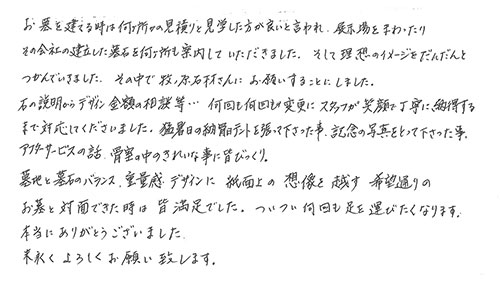 お墓を建てる時は何ヶ所かの見積りと見学した方が良いと言われ、展示場をまわったり
その会社の建立した墓石を何ヶ所も案内していただきました。そして理想のイメージをだんだんと
つかんでいきました。その中で牧ノ原石材さんにお願いすることにしました。
石の説明からデザイン金額の相談等… 何回も何回も変更にスタッフが笑顔で丁寧に、納得する
まで対応してくださいました。猛暑日の納骨にテントを張って下さった事、記念の写真をとって下さった事、
アフターサービスの話、骨室の中のきれいな事に皆びっくり。
墓地と墓石のバランス、重量感、デザインに 紙面上の 想像を越す 希望通りの
お墓と対面できた時は皆満足でした。ついつい何回も足を運びたくなります。
本当にありがとうございました。
末永くよろしくお願い致します。